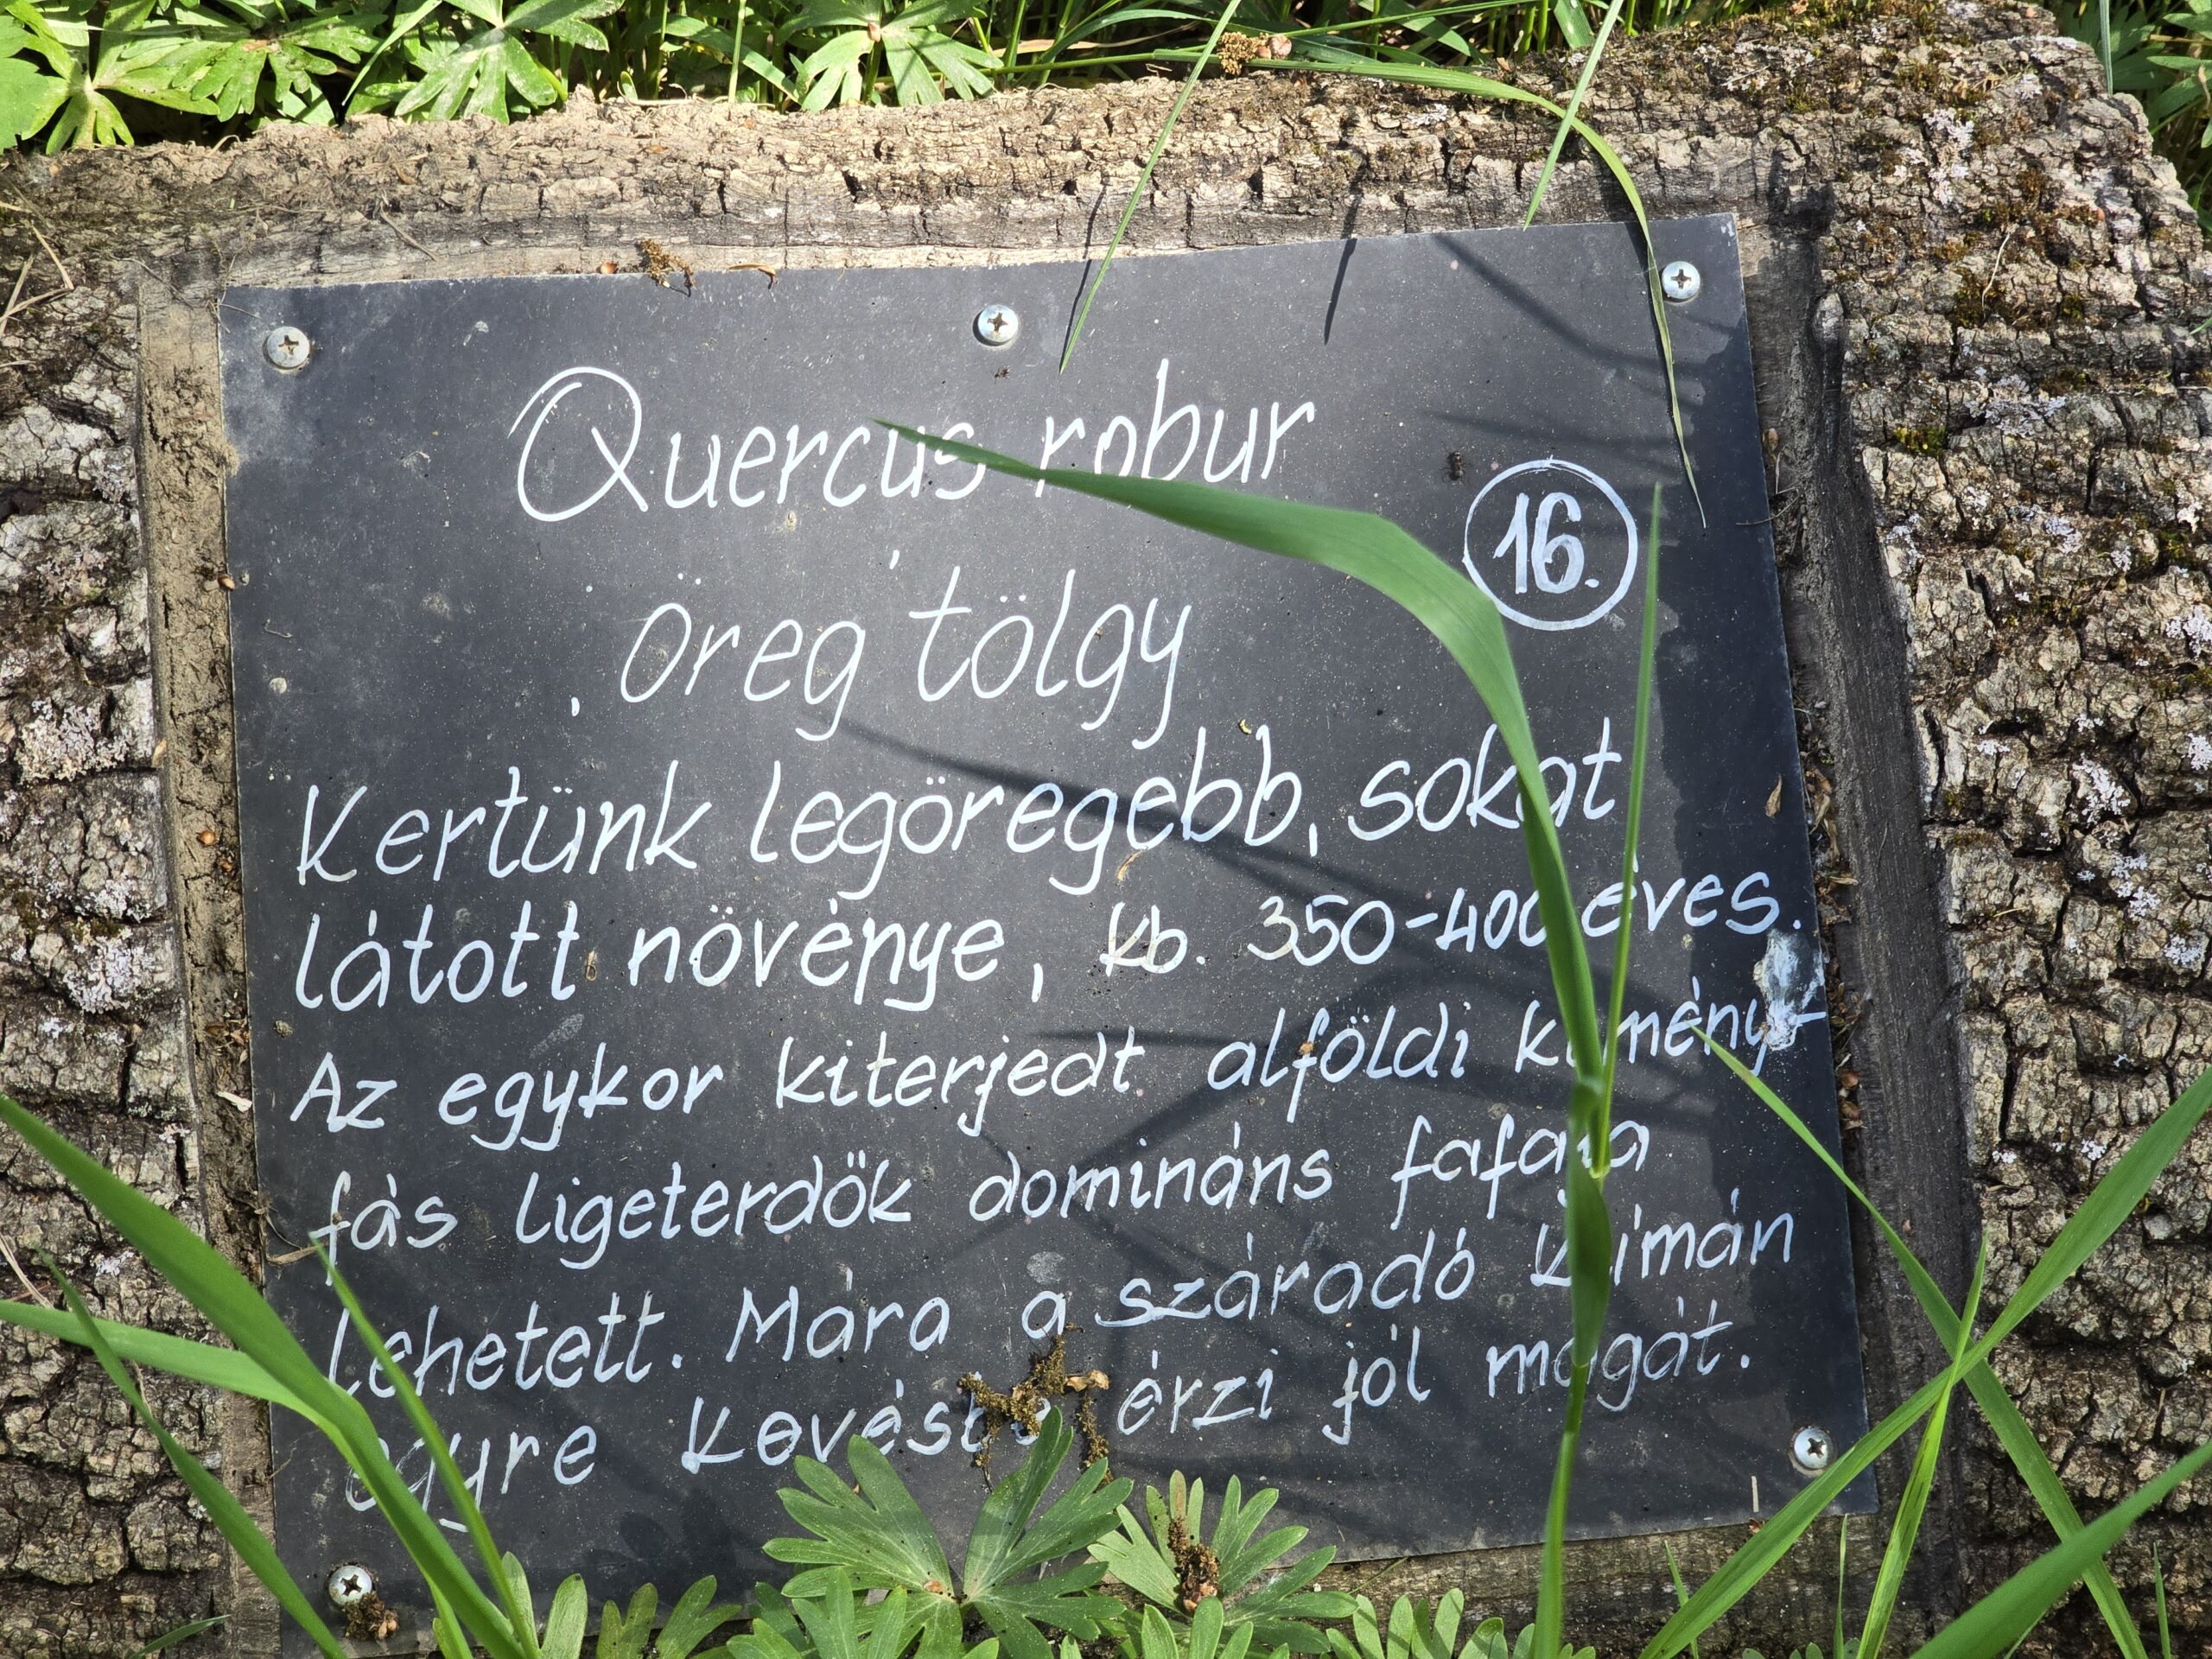 Quercus robur
16.
öreg tölgy
Kertünk legöregebb, sokat
látott növénye, kb. 350-400 éves.
Az egykor kiterjedt alföldi kemény-
fás ligeterdők domináns fafaja
lehetett. Mára a száradó klímán
egyre kevésbé érzi jól magát.